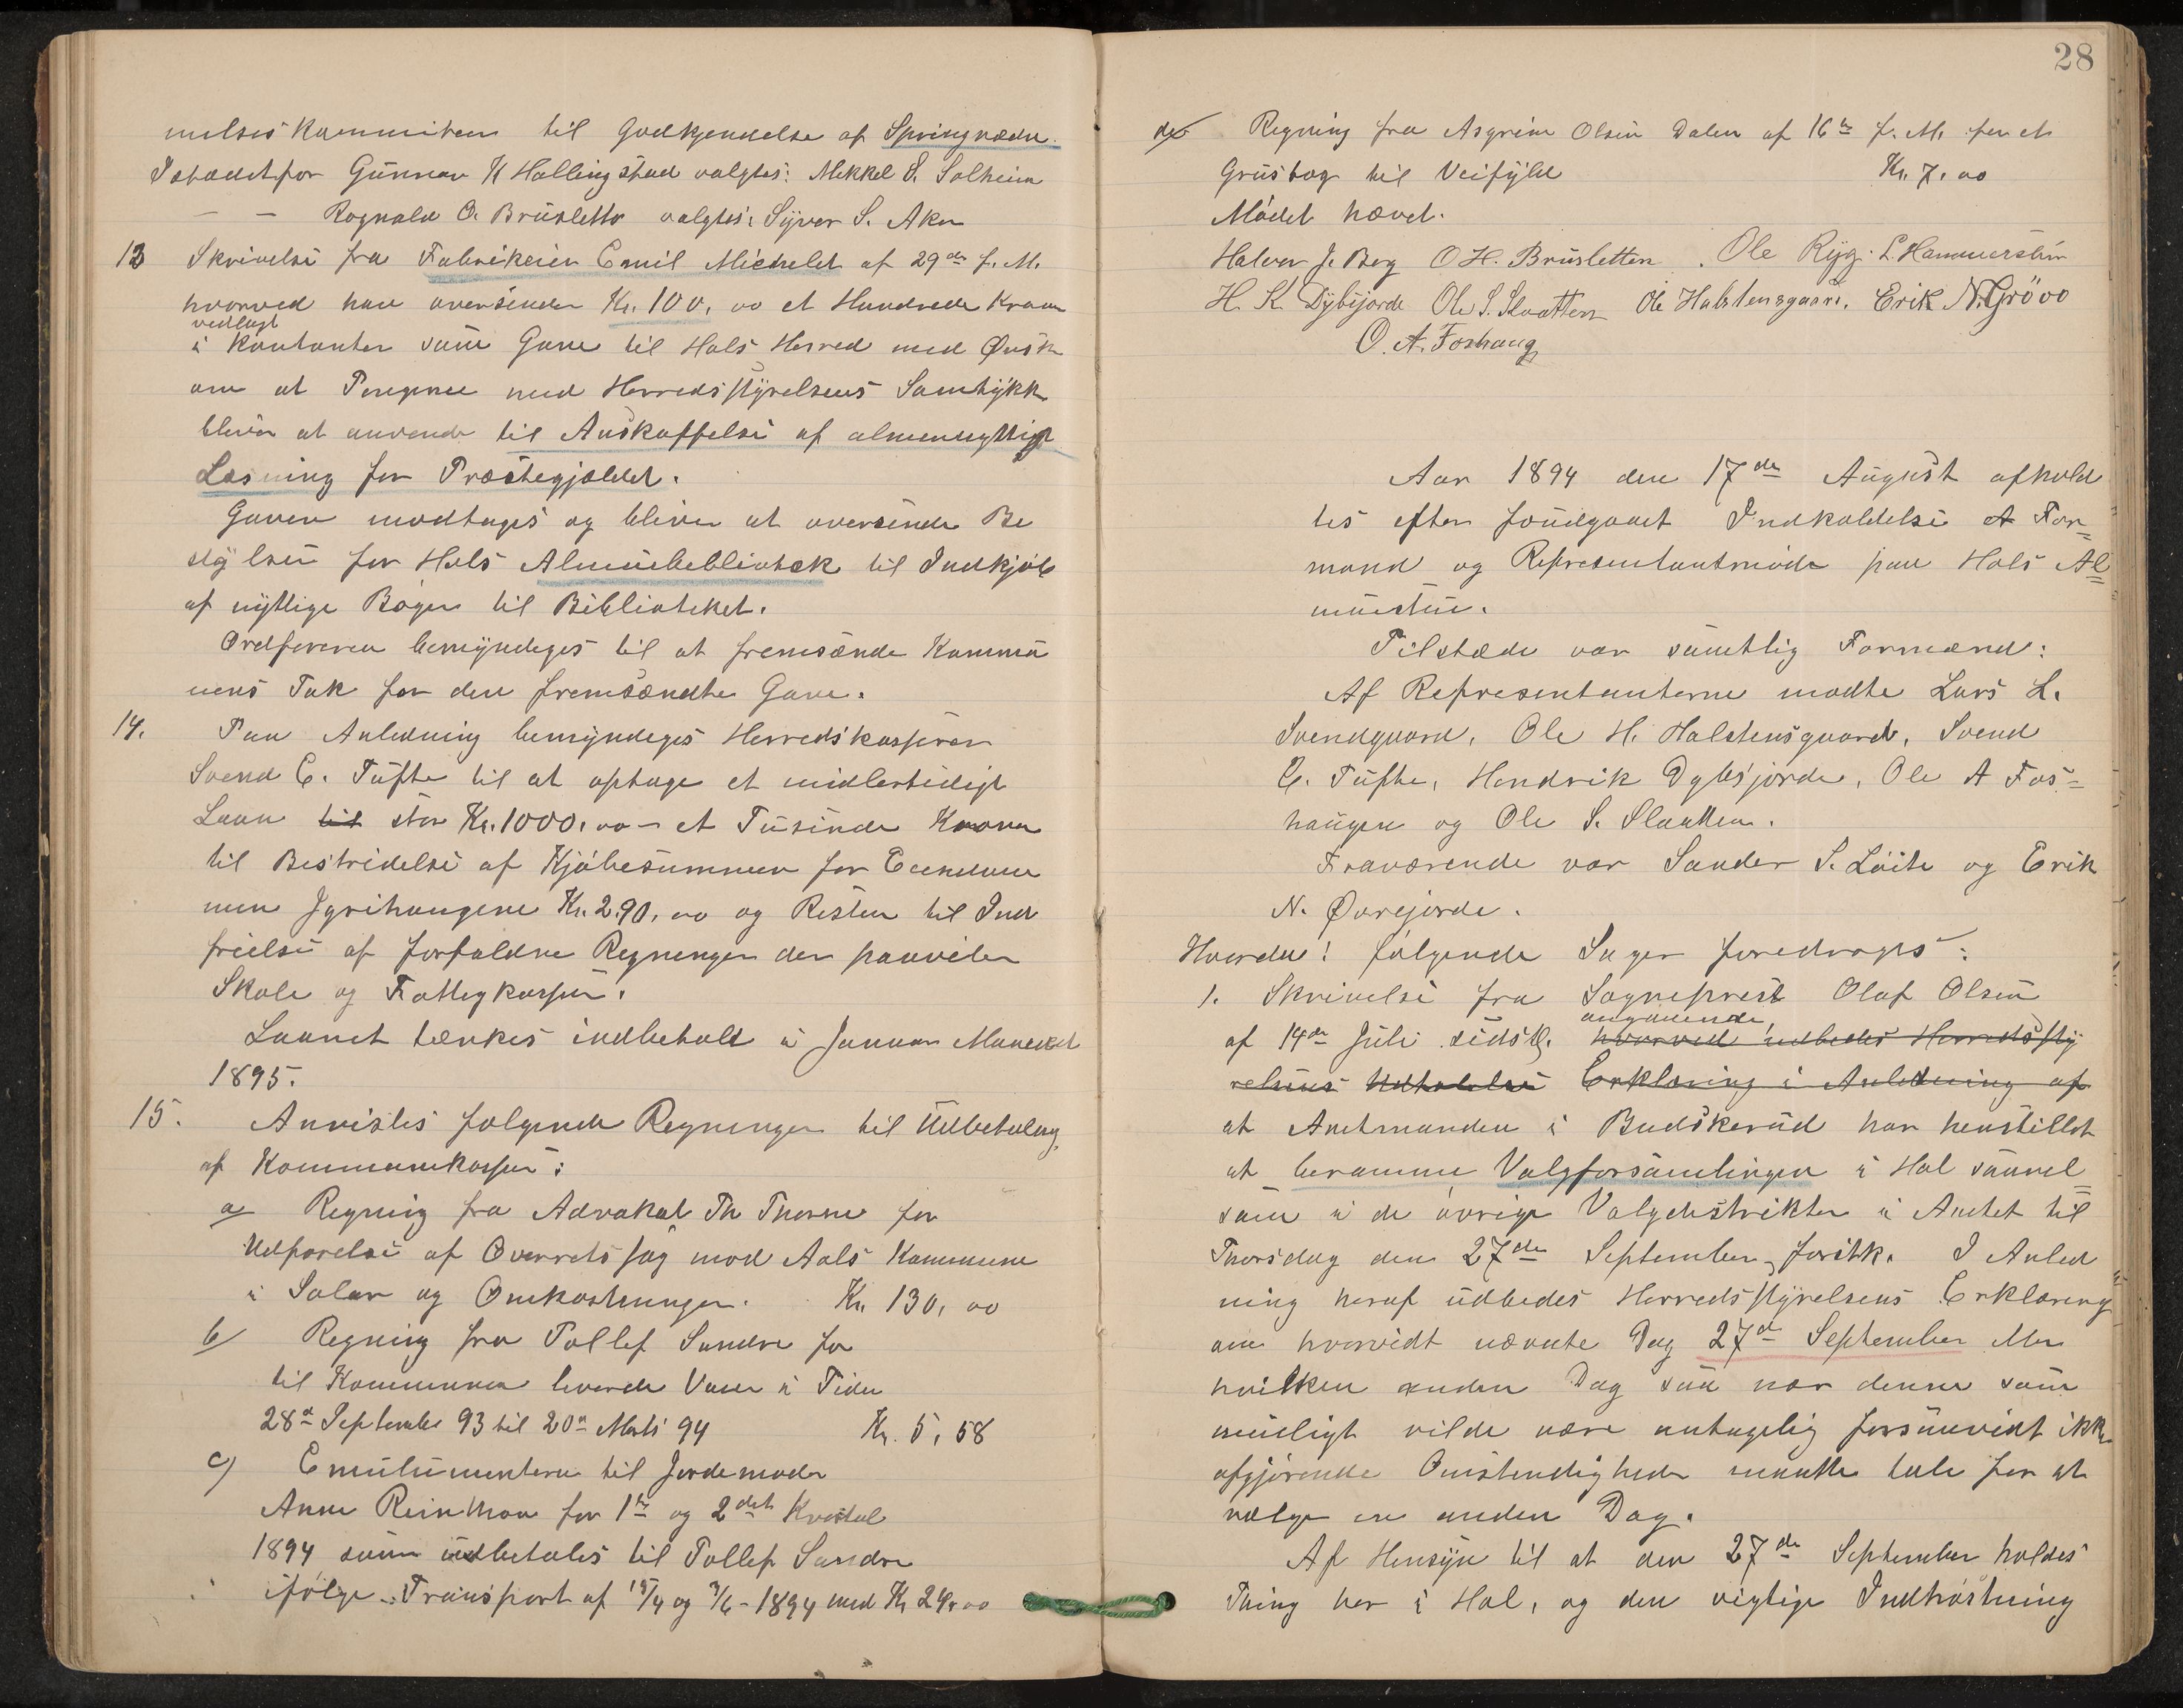 melses kommiteen til Godkjendelse af Springrædn.
Istædetfor Gunnar K Hallingstad valgtes: Mekkel S. Solheim
— — Rognald O. Brusletto valgtes: Syver S. Aker
13 Skrivelse fra Fabrikeier Emil Michelet af 29de f. M.
hvorved han oversender Kr. 100,00 et Hundrede Kroner
vedlagt
i Kontanter som Gave til Hols Herred med Ønske
om at Pengene med Herredsstyrelsens Samtykke
bliver at anvende til Anskaffelse af almennyttig
Læsning for Præstegjældet.
Gaven modtages og bliver at oversende Be
styrelsen for Hols Almuebibliothek til Indkjøb
af nyttige Bøger til Bibliotheket.
Ordføreren bemyndeges til at fremsænde Kommu
nens Tak for den fremsændte Gave.
14. Paa Anledning bemyndeges Herredskasserer
Svend E. Tufte til at optage et midlertidigt
Laan til stor Kr. 1000,00 – et Tusinde Kroner
til Bestridelse af Kjøbesummen for Eiendom
men Jgrihaugene Kr. 290,00 og Resten til Ind
frielse af forfaldne Regninger der paaviler
Skole og Fattigkassen.
Laanet tænkes indbetalt i Januar Maaned
1895.
15. Anvistes følgende Regninger til Udbetaling
af Kommunekassen:
a) Regning fra Advokat Th Thorne for
Udførelse af Overretssag mod Aals Kommune
i Salær og Omkostninger. Kr. 130,00
b) Regning fra Tollef Sundre for
til Kommunen leverede Varer i Tiden
28de September 93 til 20de Marts 94 Kr. 5,58
c) Emulumenterne til Jordemoder
Anne Reinthon for 1ste og 2det Kvartal
1894 som udbetales til Tollef Sundre
ifølge Transport af 15/4 og 3/6 – 1894 med Kr 24,00
28
d) Regning fra Asgrim Olsen Dalen af 16de f. M. for et
Grustag til Veifyld Kr. 7,00
Mødet hævet.
Halvor J. Berg O H. Brusletten. Ole Ryg. L. Hammersbøn
H. K. Dybsjorde Ole S. Slaatten Ole Halstensgaard. Erik N. Grövo
O. A. Foshaug
Aar 1894 den 17de August afhold
tes efter foudgaaet Indkaldelse et For=
mand og Representantmøde paa Hols Al=
muestue.
Tilstæde var samtlig Formænd:
Af Representanterne mødte Lars L.
Svendgaard, Ole H. Halstensgaard, Svend
E. Tufte, Hendrik Dybsjorde, Ole A Fos=
haugen og Ole S. Slaatten.
Fraværende var Sander S. Løite og Erik
N. Øvrejorde.
Hvorda! følgende Sager foredroges:
1. Skrivelse fra Sogneprest Olaf Olsen
angaaende
af 14de Juli sidstl. hvorved udbedes Herredssty
relsens Udtalelse Erklæring i Anledning af
at Amtmanden i Buskerud har henstillet
at beramme Valgforsamlingen i Hol saavel=
som i de øvrige Valgdistrikter i Amtet til
Thorsdag den 27de September førstk. I Anled
ning heraf udbedes Herredsstyrelsens Erklæring
om hvorvidt nævnte Dag 27de September eller
hvilken anden Dag saa nær denne som
muligt vilde være antagelig forsaavidt ikke
afgjørende Omstendigheder maatte tale for at
vælge en anden Dag.
Af Hensyn til at den 27de September holdes
Thing her i Hol, og den vigtige Indhøstning